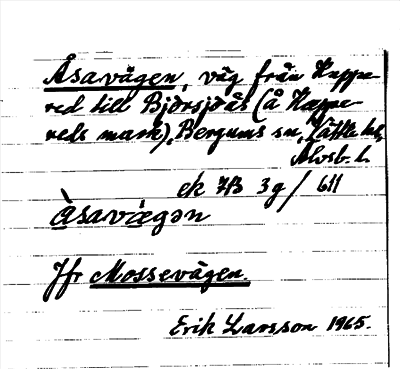 Åsavägen, väg från Huppe-
red till Björsjöås (å Huppe-
reds mark), Bergums sn, Vättle hd,
Älvsb. l.
ek 7B 3g / 611
Àsavægən
Jfr Mossevägen.
Erik Larsson 1965.